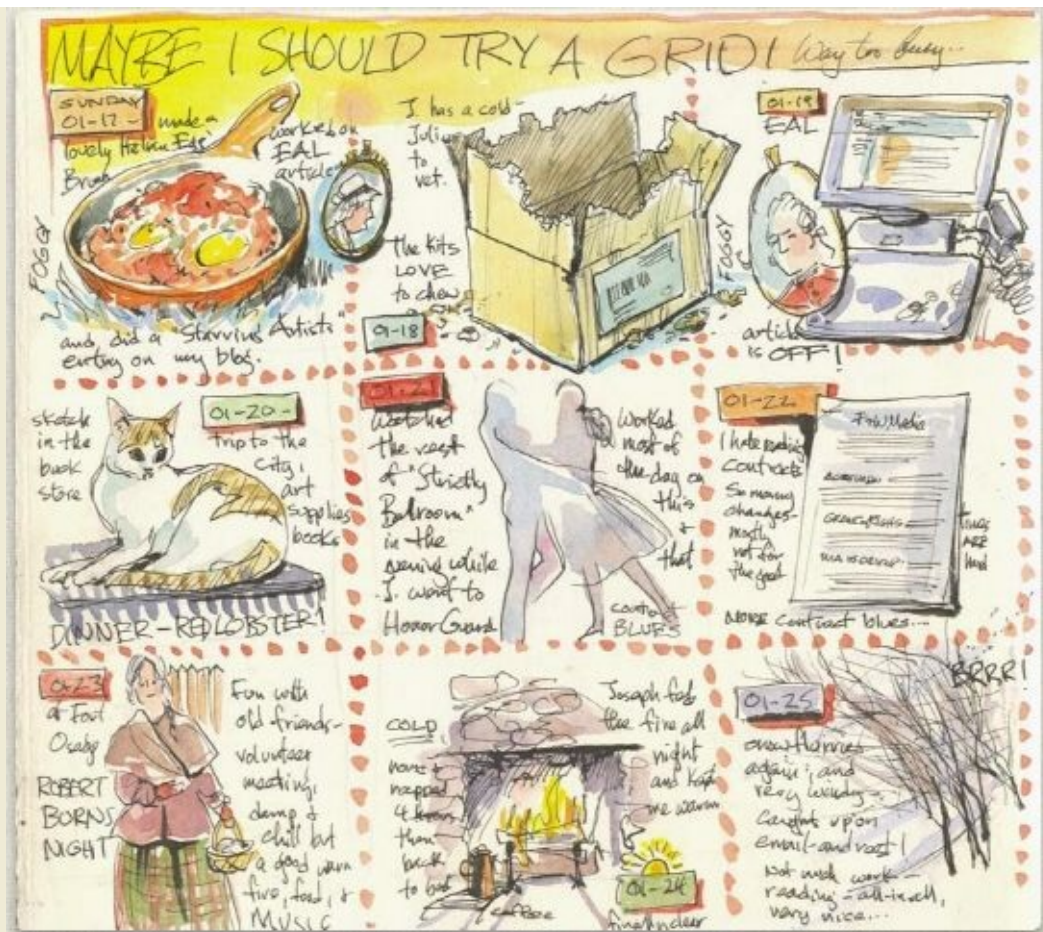 MAYBE I SHOULD TRY A GRID! Way too busy...
SUNDAY
01-17-
made a
lovely Italian Egg
Brunch
worked on
EAL
article
FOGGY
and did a "Starving Artists"
entry on my blog.
J. has a cold-
to
vet.
The kits
LOVE
to chew
01-18
01-19
EAL
FOGGY
article
is OFF!
sketch
in the
book
store
01-20-
trip to the
city,
art
supplies
books
DINNER-RED LOBSTER!
01-21
Watched
the rest
of "Strictly
Ballroom"
in the
evening while
J. went to
Honor Guard
Worked
most of
the day on
this
+
that
BLUES
01-22
I hate
contracts
So many
changes-
mostly
not for
the good
MORE contract blues....
01-23
at Fort
Osage
ROBERT
BURNS
NIGHT
Fun with
old friends-
volunteer
meeting,
damp +
chill but
a good warm
fire, food, +
MUSIC
COLD
home +
napped
4 hours
then
back
to bed
coffee
Joseph fed
the fire all
night
and kept
me warm
01-24
finally clear
01-25
BRRR!
snow flurries
again, and
very windy-
caught up on
email-and rest!
Not much work-
reading-all-in-all,
very nice...